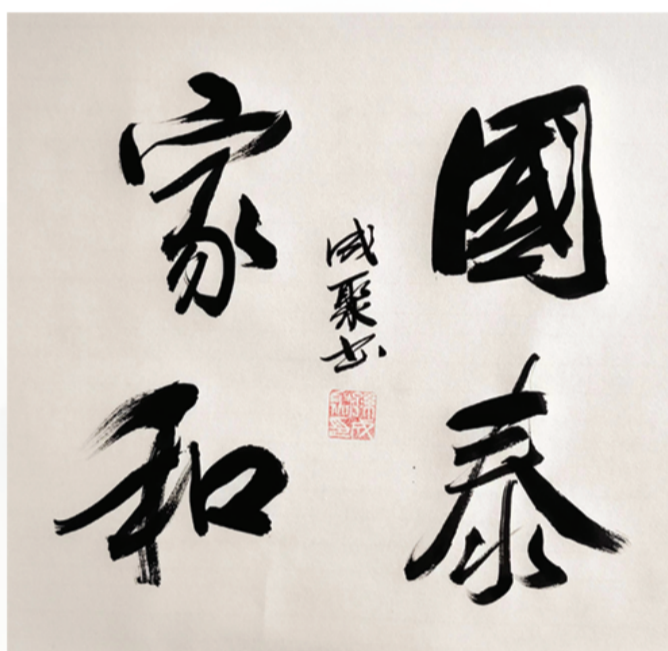 國泰
家和
成聚书